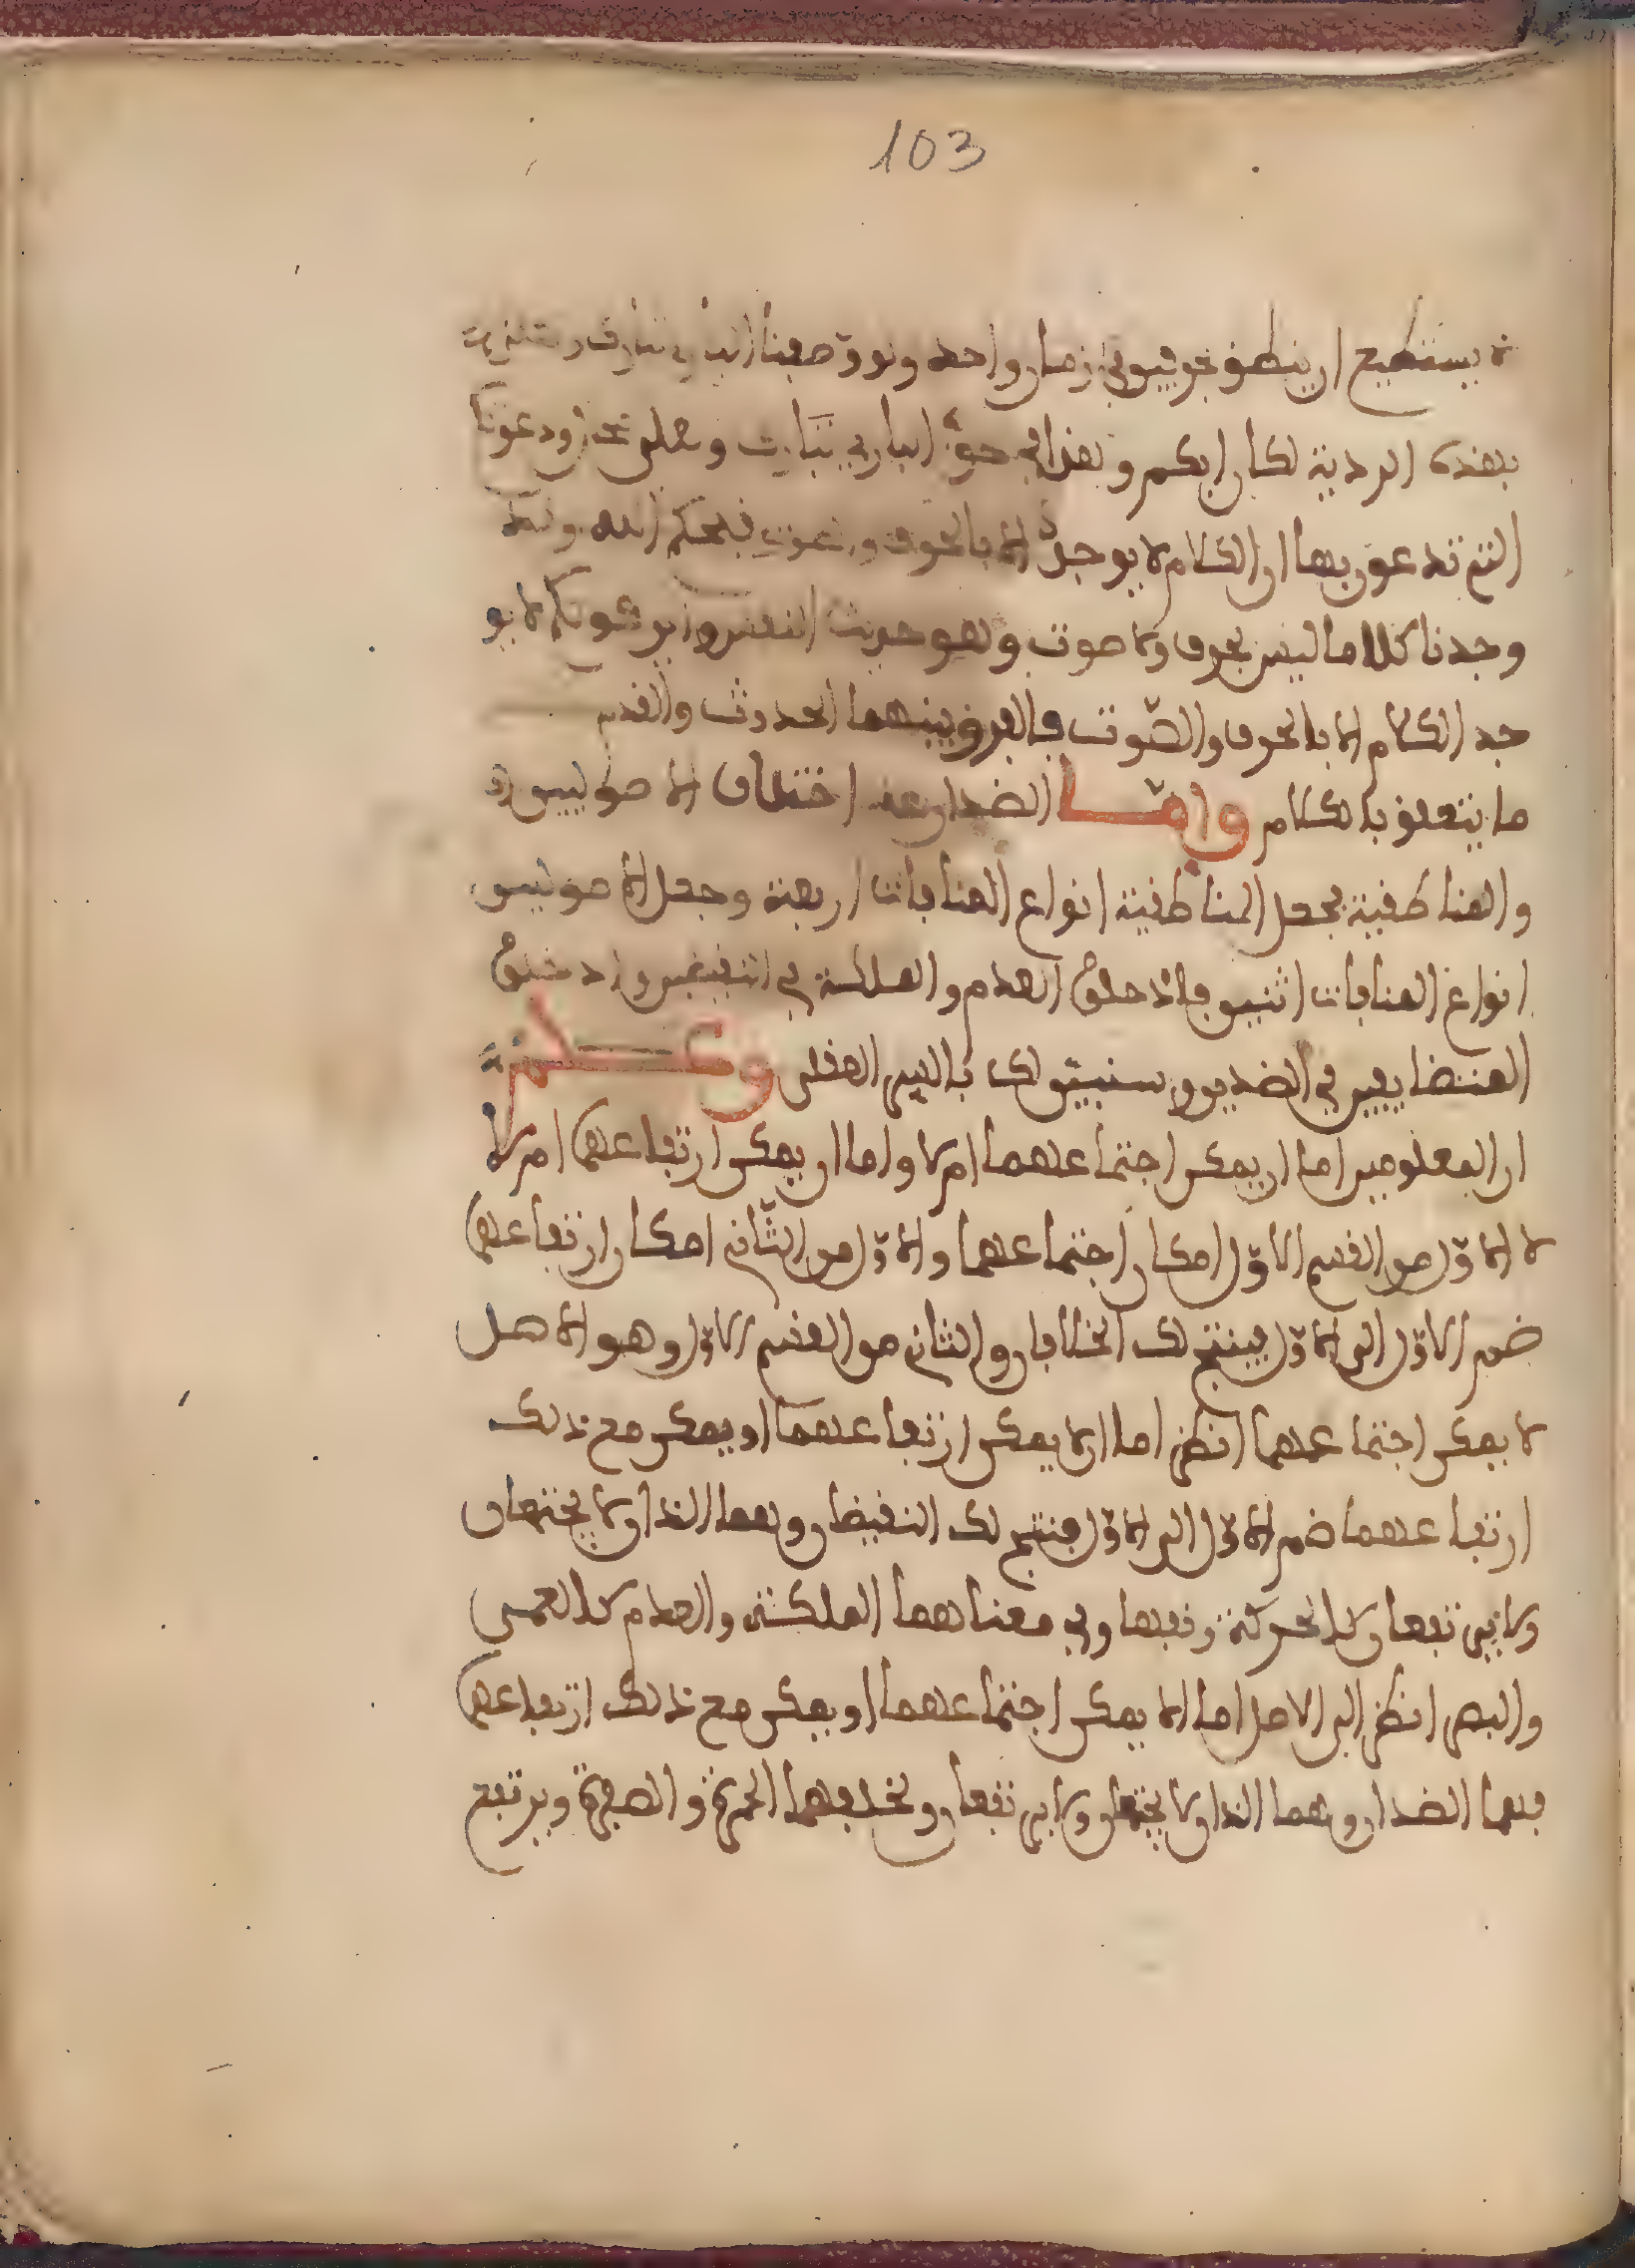 103
يستطيع ان ينطق بحرفين في زمان واحد ولو وصفنا الباري
بهذه الردية لكان ابكم وهذا في حق الباري تبارك وتعلى ودعوتكم
التي تدعون بها ان الكلام لا يوجد الا بالحروف والصوت فلله
وجدنا كلاما ليس بحرف ولا صوت وهو حديث النفس لا يو
جد الكلام الا بالحروف والصوت فالفرق بينهما الحدوث والقدم
ما يتعلق بالكلام واما الضدان ففيه اختلاف الاصوليين
والمناطقية فجعل المناطقية انواع المنافات اربعة وجعل الاصوليين
انواع المنافات اثنين فادخلوا العدم والملكة في النقيضين وادخلوا
المتضايفين في الضدين وسنبين لك بالفهم العقلى وعلم
ان المعلومين اما ان يمكن اجتماعهما ام لا واما ان يمكن ارتفاعهما ام لا
لا الاول من القسم الاول امكان اجتماعهما والاول من الثاني امكان ارتفاعهما
ضم الاول الى الاول فينتج لك الخلافان والثاني من القسم الاول وهو الاصل
لا يمكن اجتماعهما انظر اما ان لا يمكن ارتفاعهما او يمكن مع ذلك
ارتفاعهما ضم الاول الى الاول فينتج لك النقيضان وهما اللذان لا يجتمعان
ولا يرتفعان كالحركة ونفيها وفي معناهما الملكة والعدم كالعمى
والبصر انظر الى الاصل اما الا يمكن اجتماعهما او يمكن مع ذلك ارتفاعهما
فهما الضدان وهما اللذان لا يجتمعان ولا يرتفعان ولخلافهما الحمرة والصفرة ويرتفع